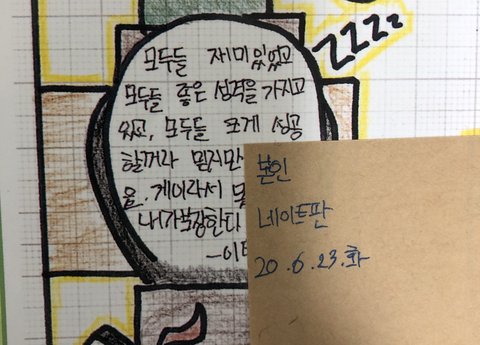 zzzz
모두들 재미있었고
모두들 좋은 성격을 가지고
있고, 모두들 크게 성공
할꺼라 믿지만
을. 게이라서
내가 보장한다
-이
본인
네이트판
20.6.23.화